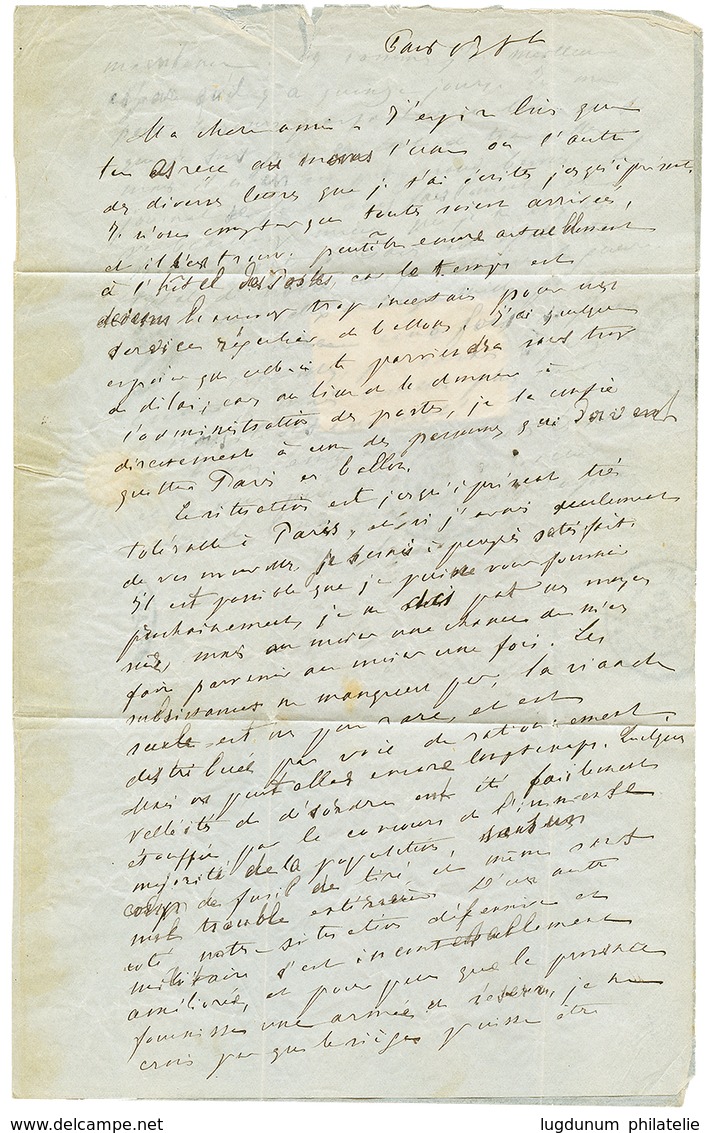 Paris
Ma chère amie. J'espère bien que
tu as reçu au moins l'une ou l'autre
des diverses lettres que je t'ai écrites jusqu'à présent.
Je n'ose compter que toutes soient arrivées,
et il s'en trouve peut être encore actuellement
à l'hôtel des Postes car le temps est
devenu beaucoup trop incertain pour un
service régulier de ballons. J'ai quelque
espoir que celle-ci te parviendra sans trop
de délai; car au lieu de le donner à
l'administration des postes, je la confie
directement à une des personnes qui doivent
quitter Paris en ballon.
La situation est jusqu'à présent très
tolérable à Paris, et si j'avais seulement
de vos nouvelles je serais à peu près satisfait.
S'il est possible que je puisse vous fournir
prochainement, je ne dis pas un moyen
sûr, mais au moins une chance de m'en
faire parvenir au moins une fois. Les
subsistances ne manquent pas, la viande
seule est un peu rare, et est
distribuée par voie de rationnement
Mais on peut aller encore longtemps. Quelques
velléités de désordre ont été facilement
étouffées par le concours de l'immense
majorité de la population, sans un
coup de fusil de tiré et même sans
nul trouble extérieur. D'un autre
côté notre situation défensive et
militaire s'est incontestablement
améliorée, et pour peu que la province
fournisse une armée de secours, je ne
crois pas que le siège puisse être
lugdunum philatelie